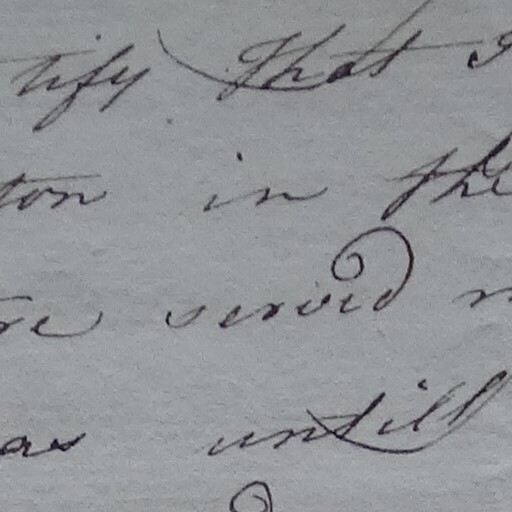 tify that I
ton in the
re servid
as untill